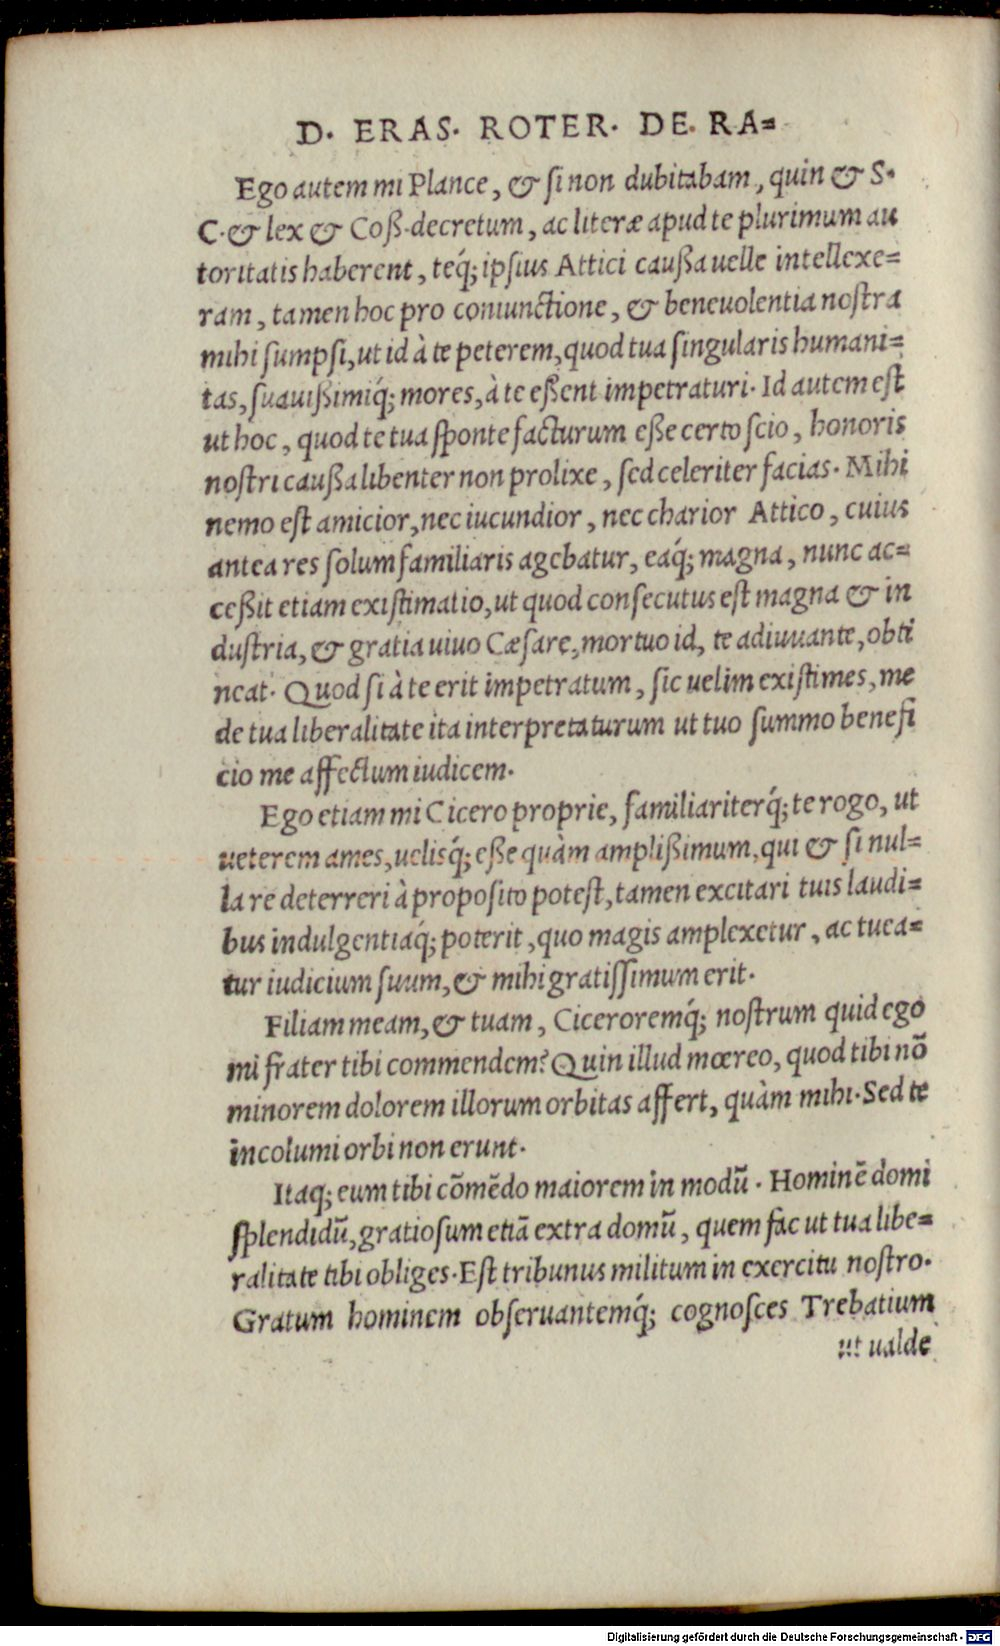 D. ERAS. ROTER. DE. RA=
Ego autem mi Plance, & si non dubitabam, quin & S.
C. & lex & Coß. decretum, ac literæ apud te plurimum au
toritatis haberent, teq́; ipsius Attici caußa uelle intellexe=
ram, tamen hoc pro coniunctione, & beneuolentia nostra
mihi sumpsi, ut id à te peterem, quod tua singularis humani=
tas, suauißimiq́; mores, à te eßent impetraturi. Id autem est
ut hoc, quod te tua sponte facturum eße certo scio, honoris
nostri caußa libenter non prolixe, sed celeriter facias. Mihi
nemo est amicior, nec iucundior, nec charior Attico, cuius
antea res solum familiaris agebatur, eaq́; magna, nunc ac=
ceßit etiam existimatio, ut quod consecutus est magna & in
dustria, & gratia uiuo Cæsare, mortuo id, te adiuuante, obti
neat. Quod si à te erit impetratum, sic uelim existimes, me
de tua liberalitate ita interpretaturum ut tuo summo benefi
cio me affectum iudicem.
Ego etiam mi Cicero proprie, familiariterq́; te rogo, ut
ueterem ames, uelisq́; eße quàm amplißimum, qui & si nul=
la re deterreri à proposito potest, tamen excitari tuis laudi=
bus indulgentiaq́; poterit, quo magis amplexetur, ac tuea=
tur iudicium suum, & mihi gratissimum erit.
Filiam meam, & tuam, Ciceroremq́; nostrum quid ego
mi frater tibi commendem? Quin illud mœreo, quod tibi nõ
minorem dolorem illorum orbitas affert, quàm mihi. Sed te
incolumi orbi non erunt.
Itaq; eum tibi cõmẽdo maiorem in modũ. Hominẽ domi
splendidũ, gratiosum etiã extra domũ, quem fac ut tua libe=
ralitate tibi obliges. Est tribunus militum in exercitu nostro.
Gratum hominem obseruantemq́; cognosces Trebatium
ut ualde
Digitalisierung gefördert durch die Deutsche Forschungsgemeinschaft - DFG